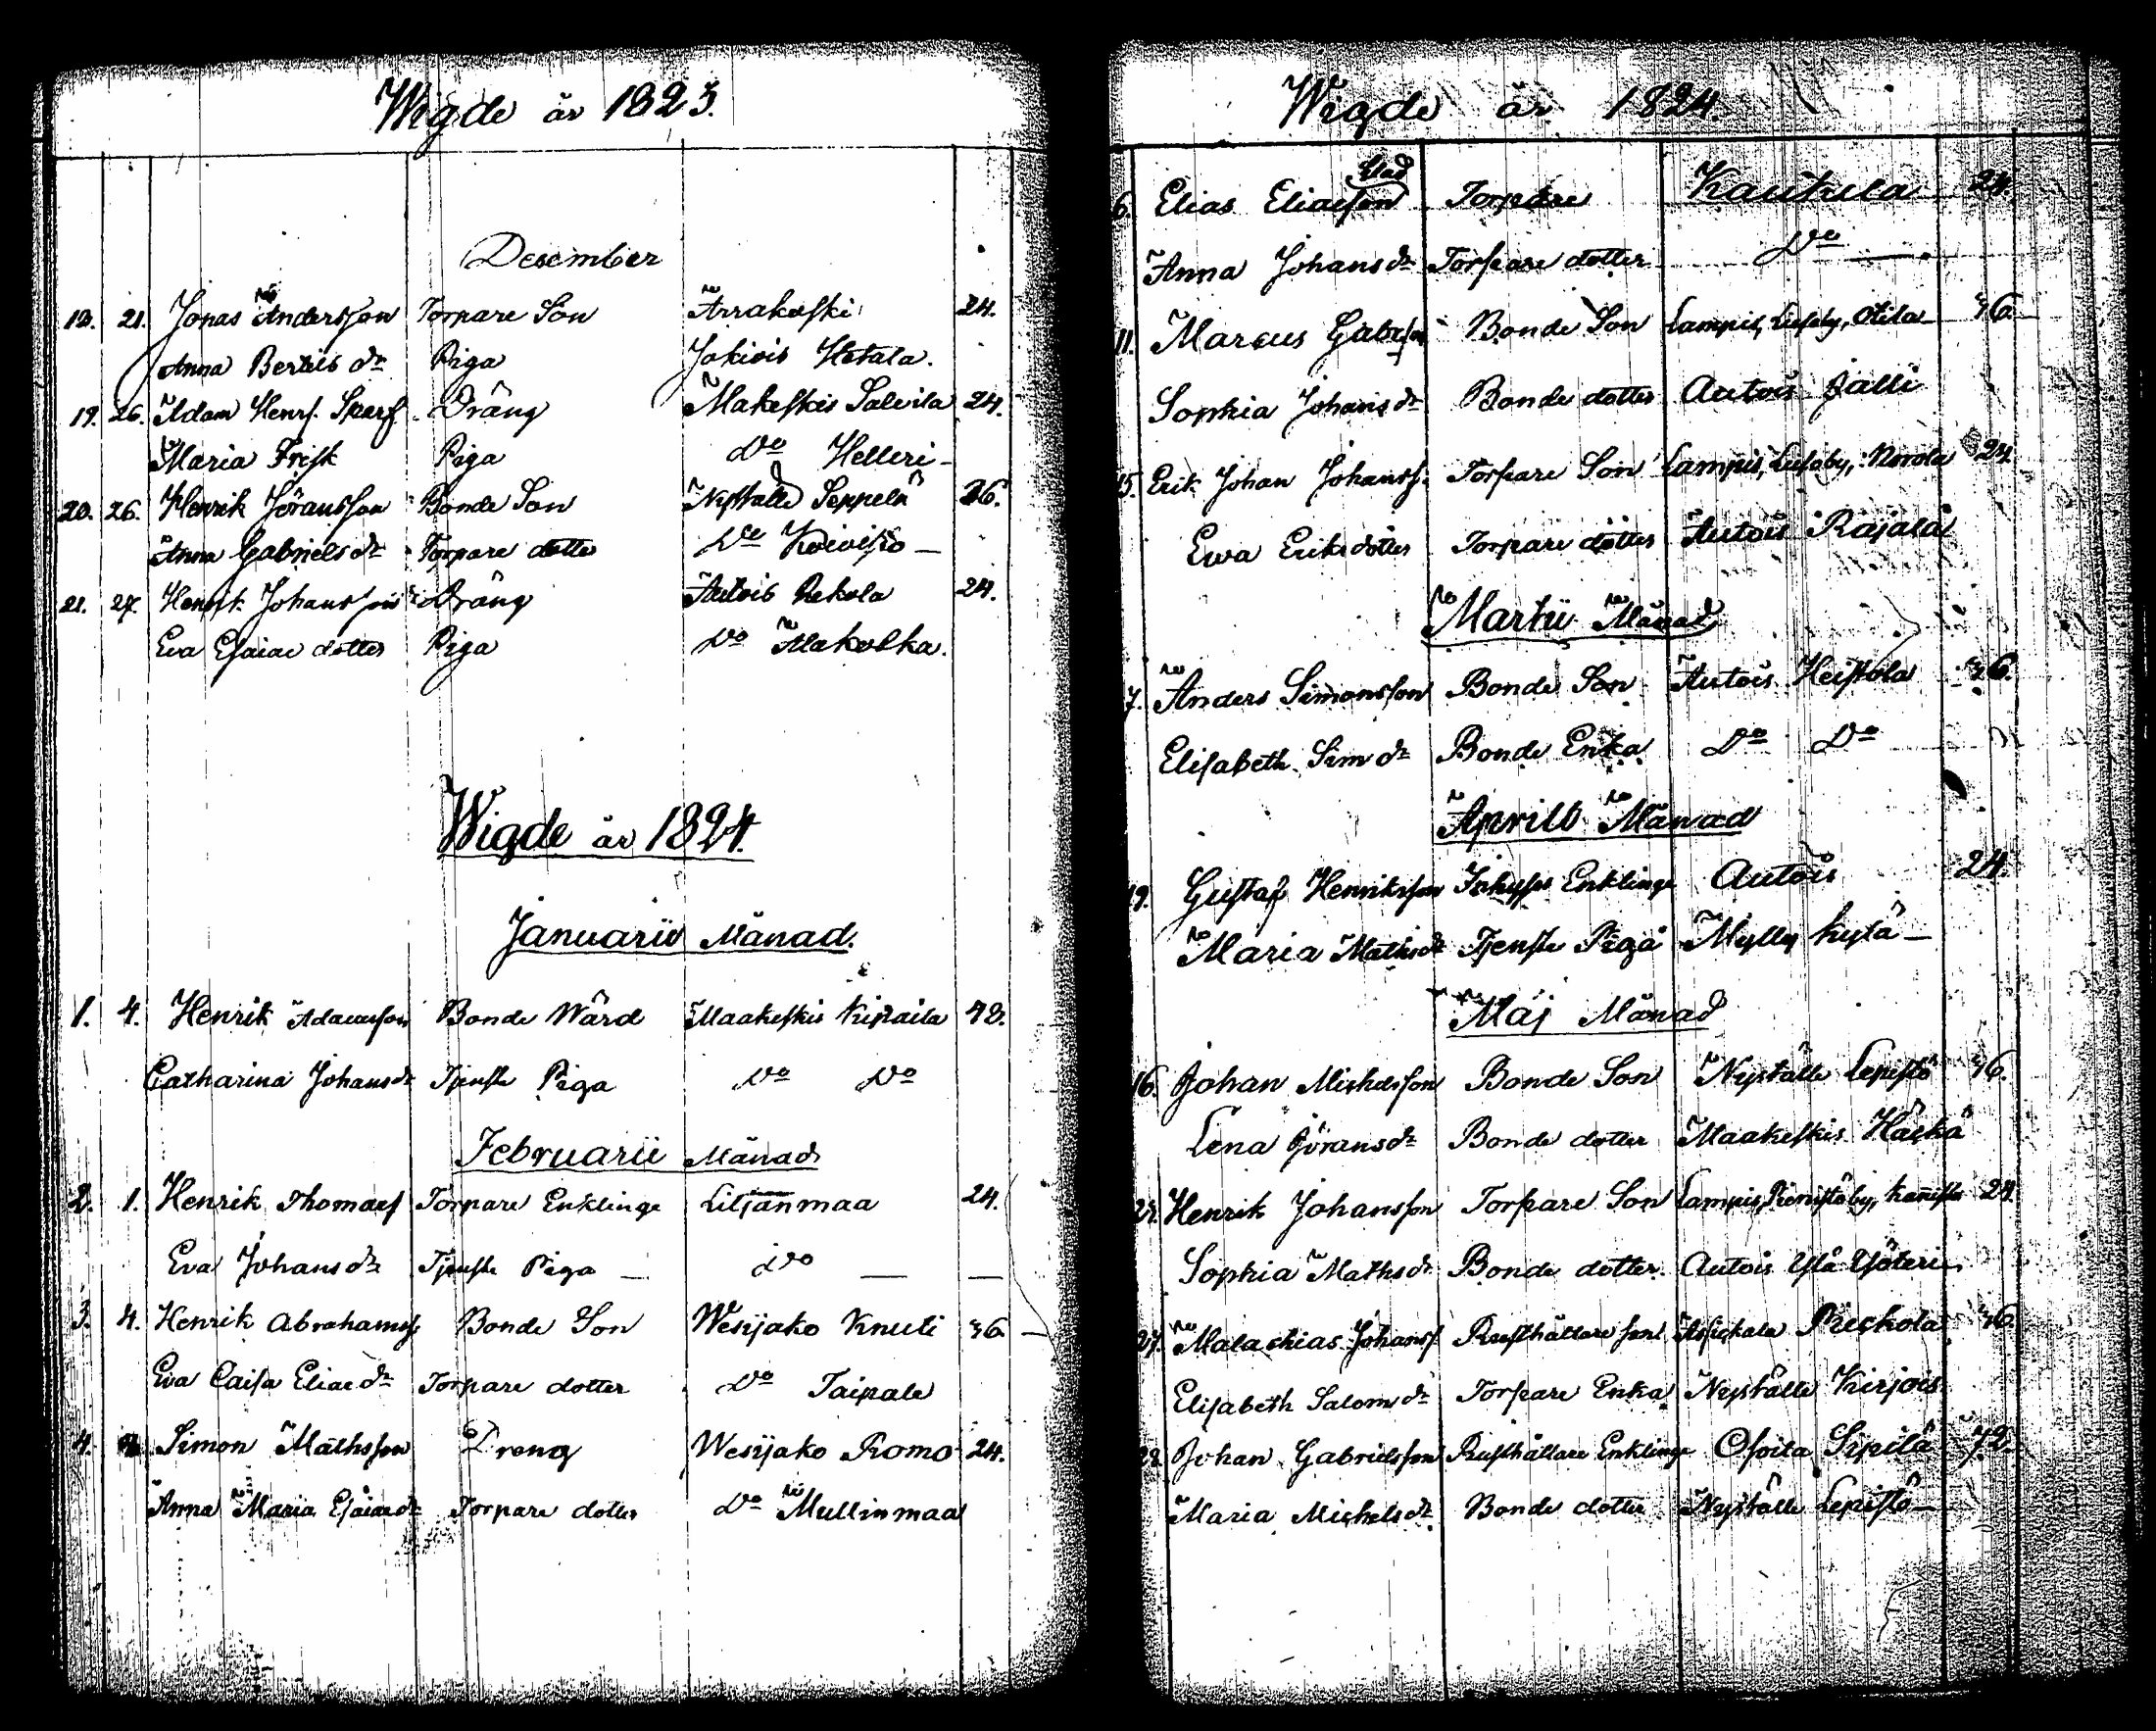 Wigde år 1823.
Desember
12. 21. Jonas Andersson Torpare Son Arrakoski 24.
Anna Bertils dr Piga Jokiois Hatala.
19. 26. Adam Henrs. Skarf Dräng Makeskis Salvila 24.
Maria Frisk Piga Do Helleri
20. 26. Henrik Jöransson Bonde Son Nyställe Seppelä 36.
Anna Gabriels dr Torpare dotter Do Koivisto
21. 27. Henrik Johansson Dräng Autois Rekola 24.
Eva Esaiae dotter Piga Do Alakolka.
Wigde år 1824.
Januarii Månad.
1. 4. Henrik Adamsson Bonde Wärd Maakeskis Kipaila 72.
Catharina Johansdr Tjenste Piga Do Do
Februarii Månad
2. 1. Henrik Thomass Torpare Enklinge Liljanmaa 24.
Eva Johans dr Tjenste Piga Do
3. 4. Henrik Abrahamss Bonde Son Wesijako Knuti 36.
Eva Caisa Eliae dr Torpare dotter Do Taipale
4. Simon Mathsson Dreng Wesijako Romo 24.
Anna Maria Esaiaedr Torpare dotter Do Mullinmaa
Wigde år 1824.
6. Elias Eliasson Torpare Kaukela 24.
Anna Johans dr Torpare dotter Do
11. Marcus Gabrss Bonde Son Lampis, Lieso by, Otila 36.
Sophia Johans dr Bonde dotter Autois Jalli
15. Erik Johan Johanss. Torpare Son Lampis, Lieso by, Norola 24.
Ewa Eriksdotter Torpare dotter Autois Rajala
Martii Månad
7. Anders Simonsson Bonde Son Autois Heistola 36.
Elisabeth Sim dr Bonde Enka Do Do
Aprill Månad
19. Gustaf Henriksson Enklinge Autois 24.
Maria Mathsdr Tjenste Piga Mylly Kylä
Maj Månad
16. Johan Michelsson Bonde Son Nyställe Lepistö 36.
Lena Jöransdr Bonde dotter Maakeskis Häckä
Henrik Johansson Torpare Son Lampis, 24.
Sophia Mathsdr Bonde dotter Autois Yli Yöteri
27. Malachias Johanss Rusthållare Son Asickala Pieskola 36.
Elisabeth Salom dr Torpare Enka Nyställe Kirjois
28. Johan Gabrielsson Rusthållare Enklinge Osoila Sipilä 72.
Maria Michelsdr Bonde dotter Nyställe Lepistö